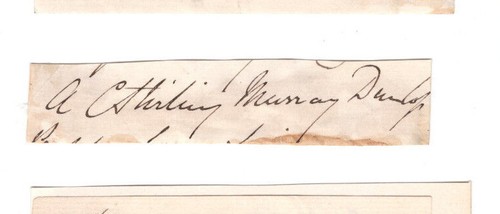 A C Stirling Murray Dunlop